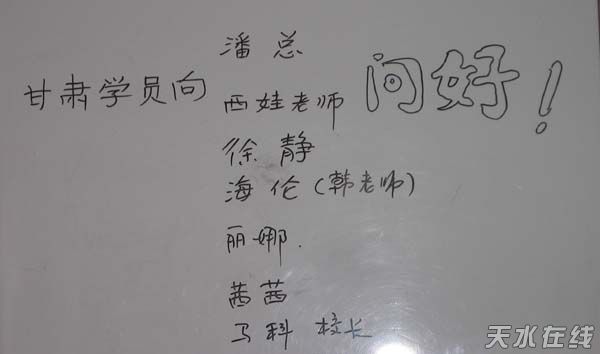 潘总
甘肃学员向
西娃老师
问好!
徐静
海伦(韩老师)
丽娜.
茜茜
马科 校长
天水在线